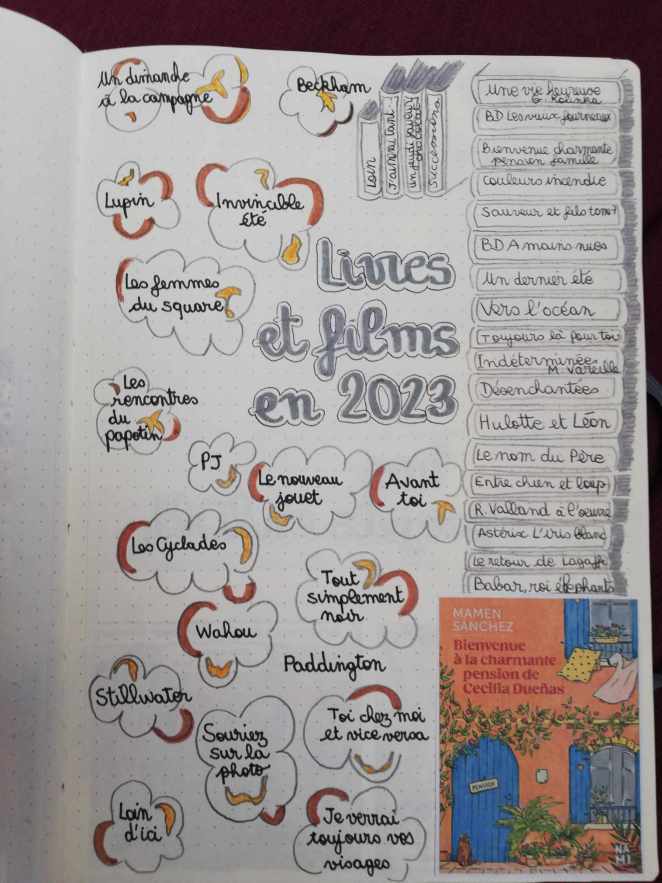 Un dimanche
à la campagne
Beckham
Lupin
Invincible
été
Les femmes
du square
Les
rencontres
du
papotin
PJ
Le nouveau
jouet
Avant
toi
Les Cyclades
Tout
simplement
noir
Wahou
Paddington
Stillwater
Souriez
sur la
photo
Toi chez moi
et vice versa
Loin
d'ici
Je verrai
toujours vos
visages
Livres
et films
en 2023
Loin
un jeudi saveur
chocolat
Succombra
Une vie heureuse
BD Les vieux fourneaux
Bienvenue charmante
pension famille
Couleurs incendie
Sauveur et fils tome 7
BD A mains nues
Un dernier été
Vers l'océan
Toujours là pour toi
Indéterminée
M. Vareille
Désenchantées
Hulotte et Léon
Le nom du Père
Entre chien et loup
R. Valland à l'oeuvre
Astérix L'iris blanc
Le retour de Lagaffe
Babar, roi éléphants
MAMEN
SÁNCHEZ
Bienvenue
à la charmante
pension de
Cecilia Dueñas
PENSION